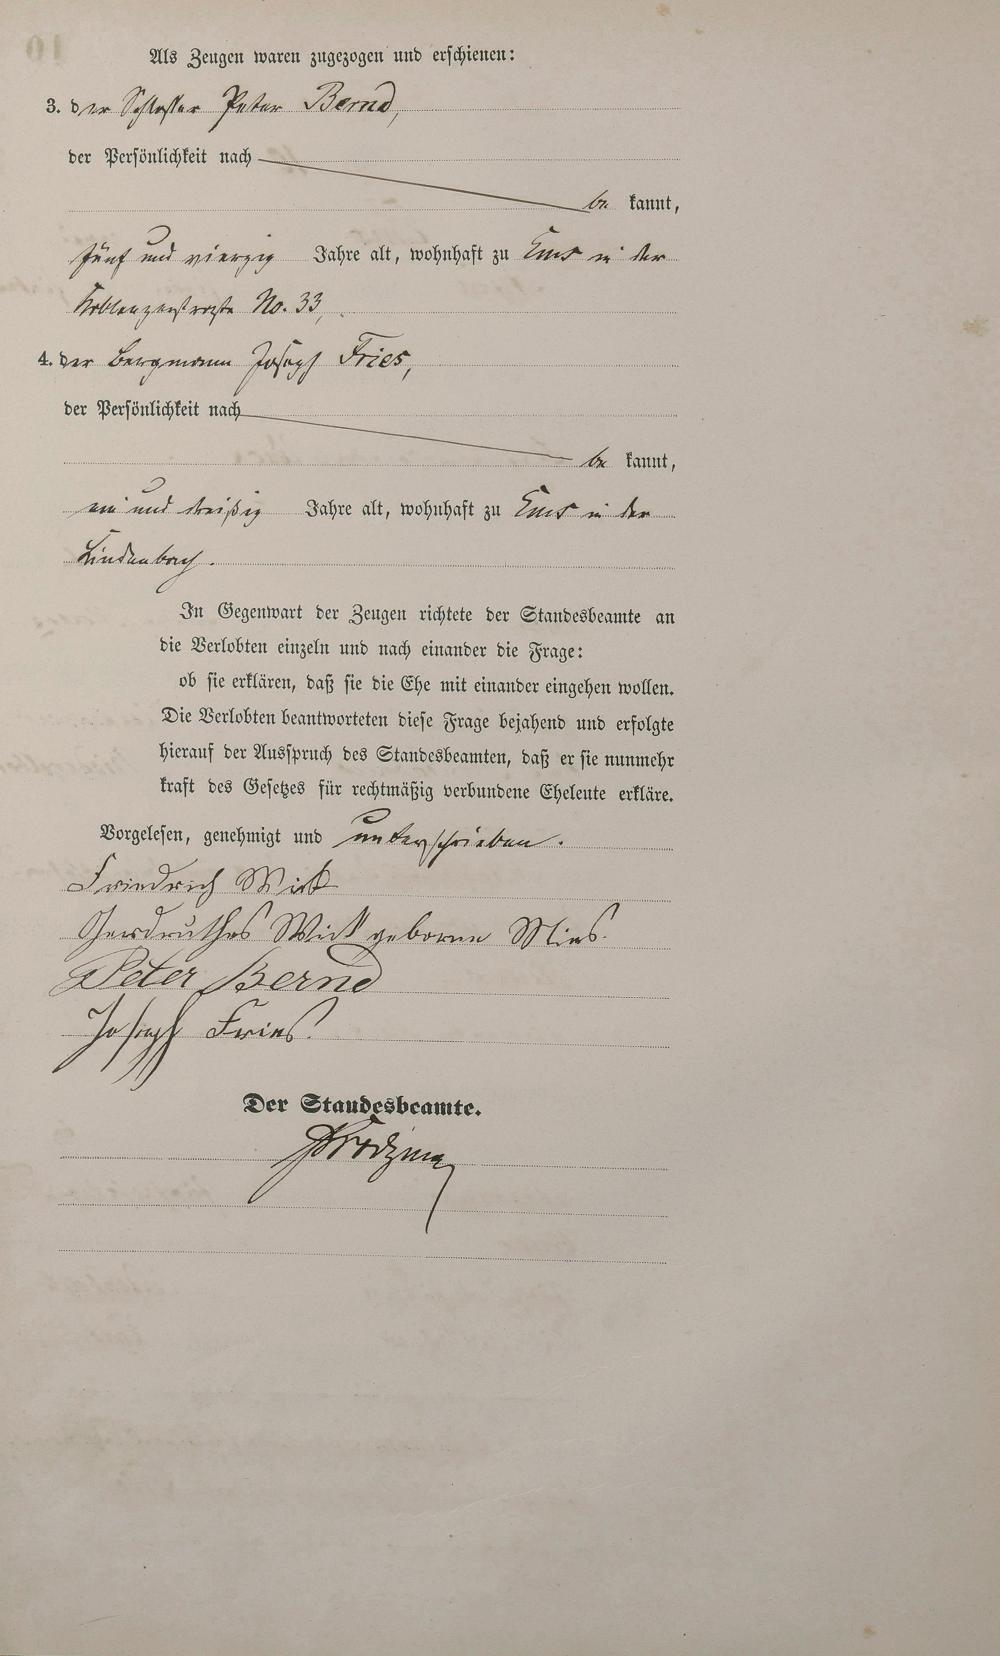 Als Zeugen waren zugezogen und erschienen:
3. der Schlosser Peter Bernd,
der Persönlichkeit nach
be kannt,
fünf und vierzig Jahre alt, wohnhaft zu Ems in der
Koblenzerstraße No. 33,
4. der Bergmann Joseph Fries,
der Persönlichkeit nach
be kannt,
ein und dreißig Jahre alt, wohnhaft zu Ems in der
Lindenbach.
In Gegenwart der Zeugen richtete der Standesbeamte an
die Verlobten einzeln und nach einander die Frage:
ob sie erklären, daß sie die Ehe mit einander eingehen wollen.
Die Verlobten beantworteten diese Frage bejahend und erfolgte
hierauf der Ausspruch des Standesbeamten, daß er sie nunmehr
kraft des Gesetzes für rechtmäßig verbundene Eheleute erkläre.
Vorgelesen, genehmigt und unterschrieben.
Friedrich Wick
Gerdruthes Wick geborne Mies.
Peter Bernd
Joseph Fries.
Der Standesbeamte.